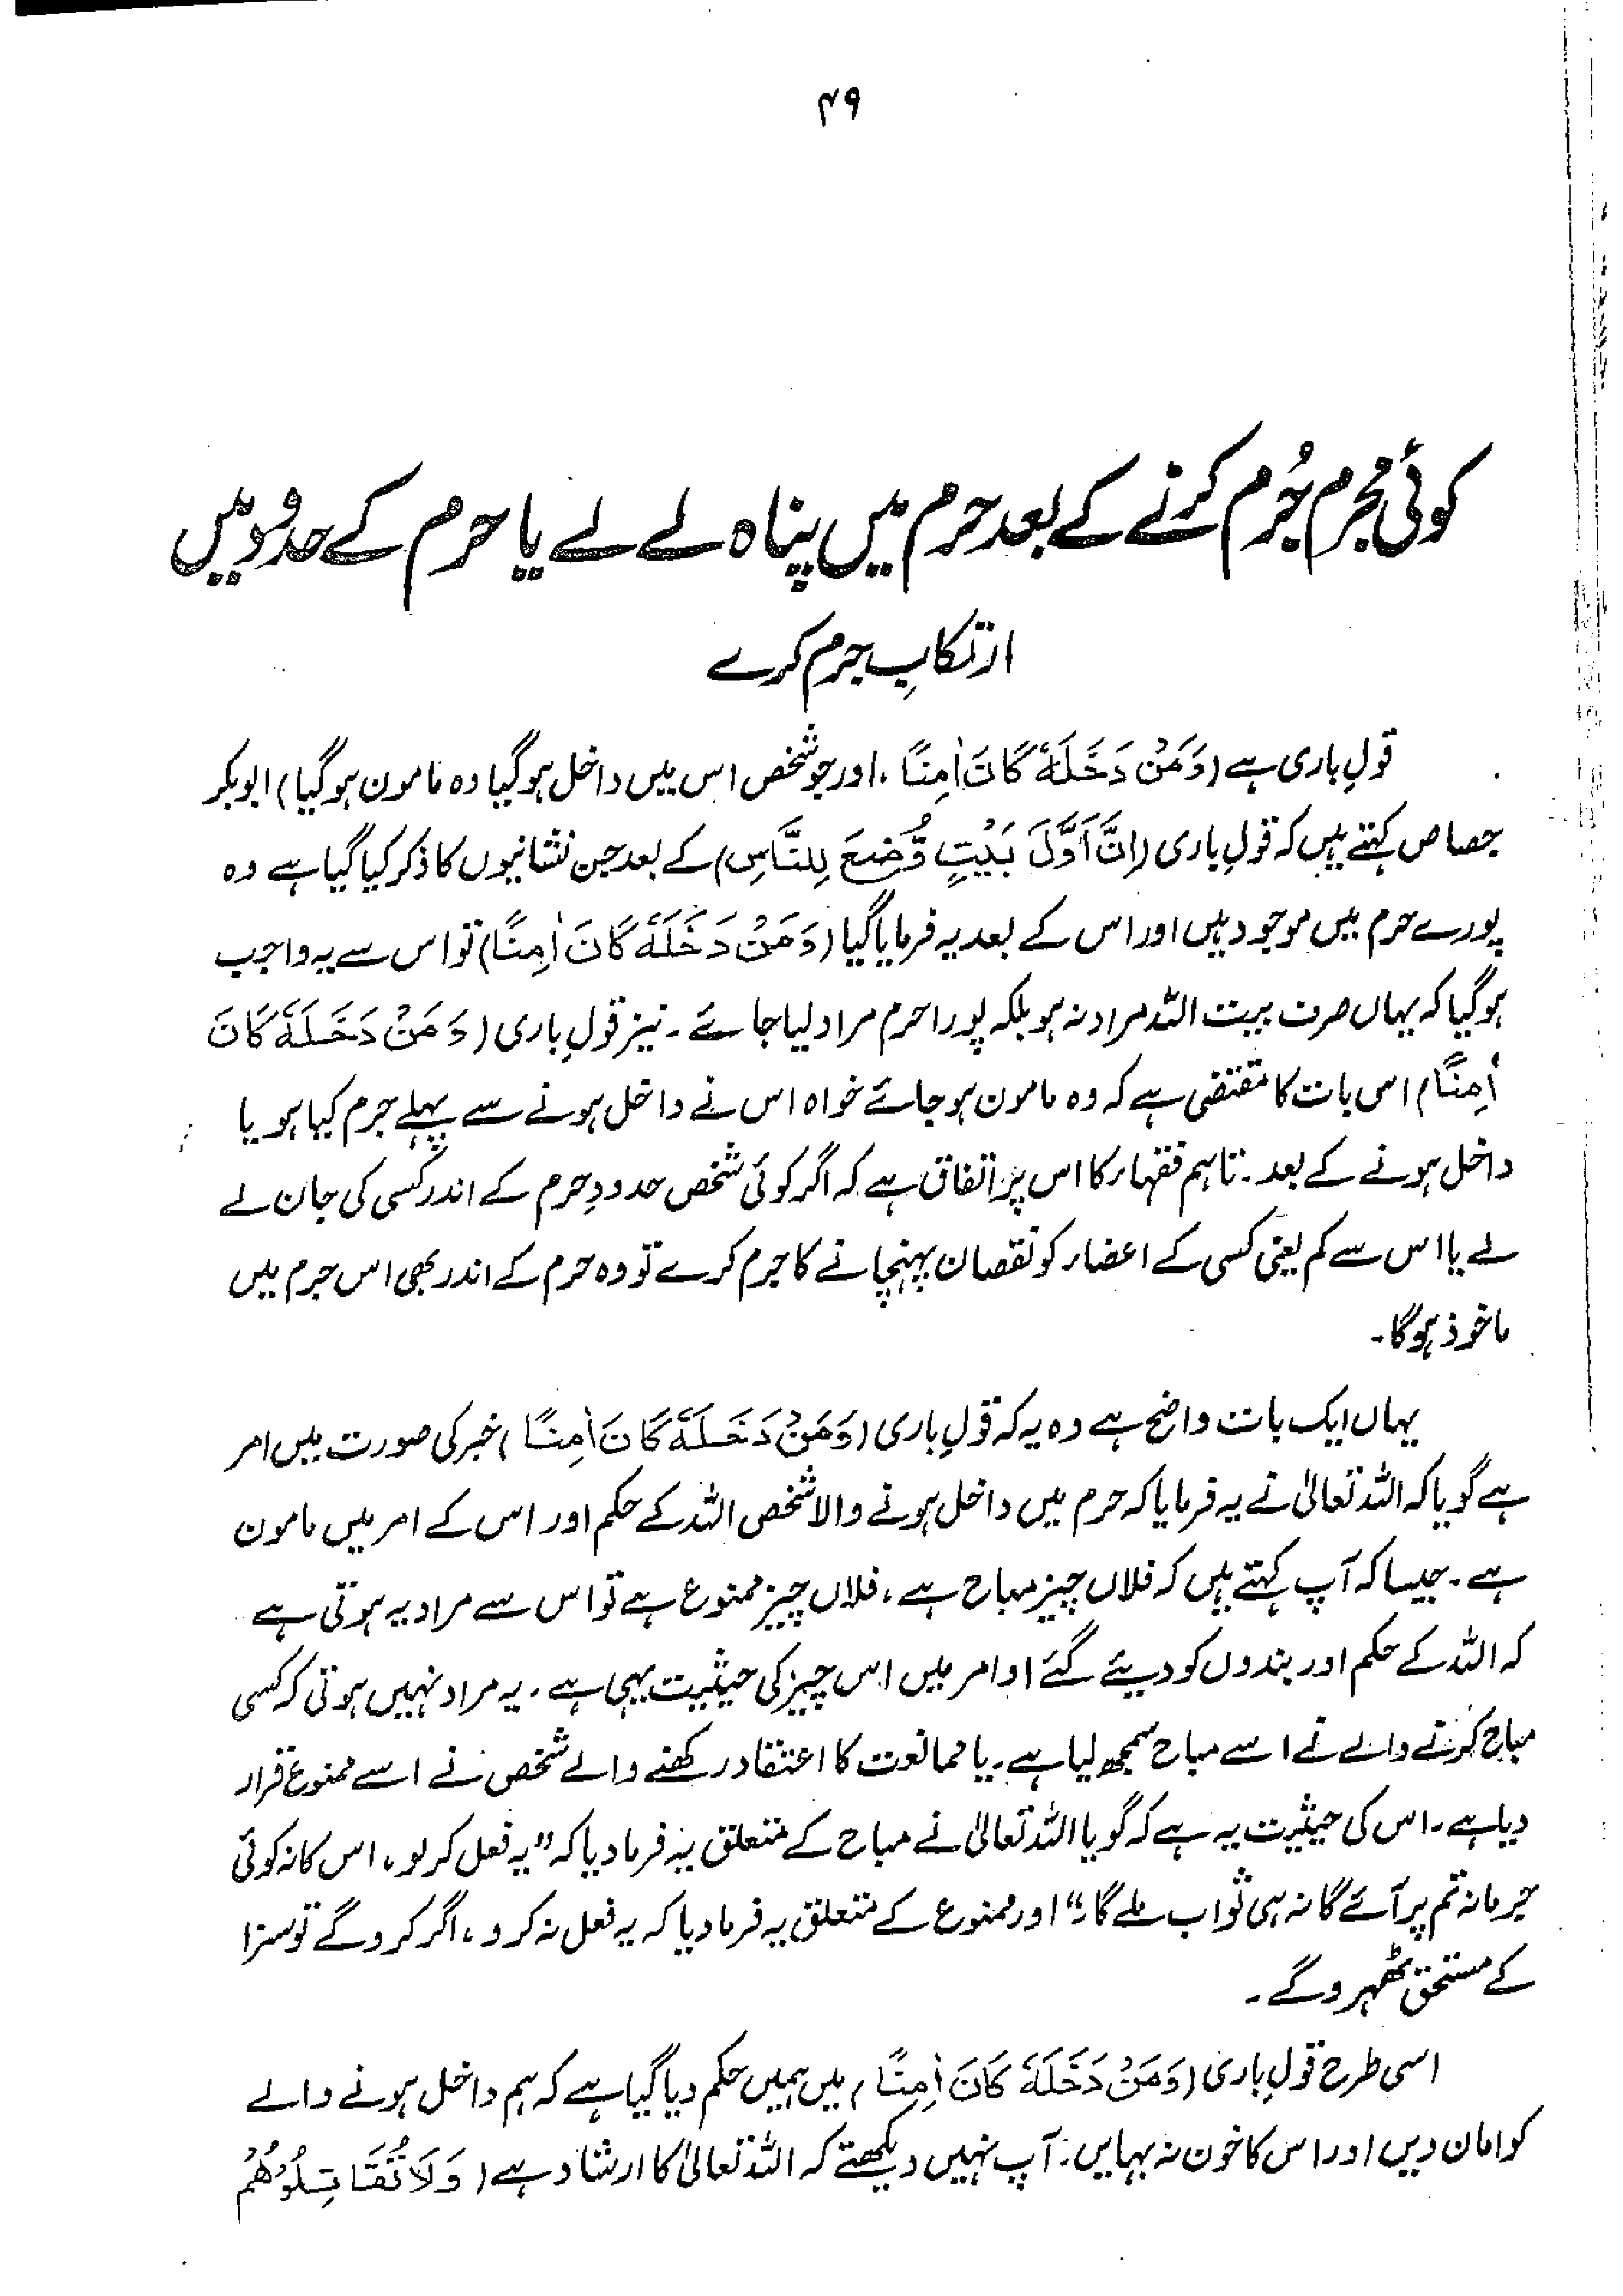 ۴۹
کوئی مجرم جُرم کرنے کے بعد حرم میں پناہ لے لے یا حرم کے حدود میں
ارتکابِ جرم کرے
قولِ باری ہے (وَمَنْ دَخَلَهٗ كَانَ اٰمِنًا ، اور جو شخص اس میں داخل ہوگیا وہ مامون ہوگیا) ابوبکر
جصاص کہتے ہیں کہ قولِ باری (اِنَّ اَوَّلَ بَيْتٍ وُّضِعَ لِلنَّاسِ) کے بعد جن نشانیوں کا ذکر کیا گیا ہے وہ
پورے حرم میں موجود ہیں اور اس کے بعد یہ فرمایا گیا (وَمَنْ دَخَلَهٗ كَانَ اٰمِنًا) تو اس سے یہ واجب
ہوگیا کہ یہاں صرف بیت اللہ مراد نہ ہو بلکہ پورا حرم مراد لیا جائے۔ نیز قولِ باری (وَمَنْ دَخَلَهٗ كَانَ
اٰمِنًا) اس بات کا مقتضی ہے کہ وہ مامون ہو جائے خواہ اس نے داخل ہونے سے پہلے جرم کیا ہو یا
داخل ہونے کے بعد۔ تاہم فقہاء کا اس پر اتفاق ہے کہ اگر کوئی شخص حدودِ حرم کے اندر کسی کی جان لے
لے یا اس سے کم یعنی کسی کے اعضاء کو نقصان پہنچانے کا جرم کرے تو وہ حرم کے اندر بھی اس جرم میں
ماخوذ ہوگا۔
یہاں ایک بات واضح ہے وہ یہ کہ قولِ باری (وَمَنْ دَخَلَهٗ كَانَ اٰمِنًا) خبر کی صورت میں امر
ہے گویا کہ اللہ تعالیٰ نے یہ فرمایا کہ حرم میں داخل ہونے والا شخص اللہ کے حکم اور اس کے امر میں مامون
ہے۔ جیسا کہ آپ کہتے ہیں کہ فلاں چیز مباح ہے، فلاں چیز ممنوع ہے تو اس سے مراد یہ ہوتی ہے
کہ اللہ کے حکم اور بندوں کو دیئے گئے اوامر میں اس چیز کی حیثیت یہی ہے۔ یہ مراد نہیں ہوتی کہ کسی
مباح کرنے والے نے اسے مباح سمجھ لیا ہے۔ یا ممانعت کا اعتقاد رکھنے والے شخص نے اسے ممنوع قرار
دیا ہے۔ اس کی حیثیت یہ ہے کہ گویا اللہ تعالیٰ نے مباح کے متعلق یہ فرما دیا کہ ”یہ فعل کرلو، اس کا نہ کوئی
جرمانہ تم پر آئے گا نہ ہی ثواب ملے گا۔“ اور ممنوع کے متعلق یہ فرما دیا کہ یہ فعل نہ کرو، اگر کرو گے تو سزا
کے مستحق ٹھہرو گے۔
اسی طرح قولِ باری (وَمَنْ دَخَلَهٗ كَانَ اٰمِنًا) میں ہمیں حکم دیا گیا ہے کہ ہم داخل ہونے والے
کو امان دیں اور اس کا خون نہ بہائیں۔ آپ نہیں دیکھتے کہ اللہ تعالیٰ کا ارشاد ہے (وَلَا تُقَاتِلُوْهُمْ